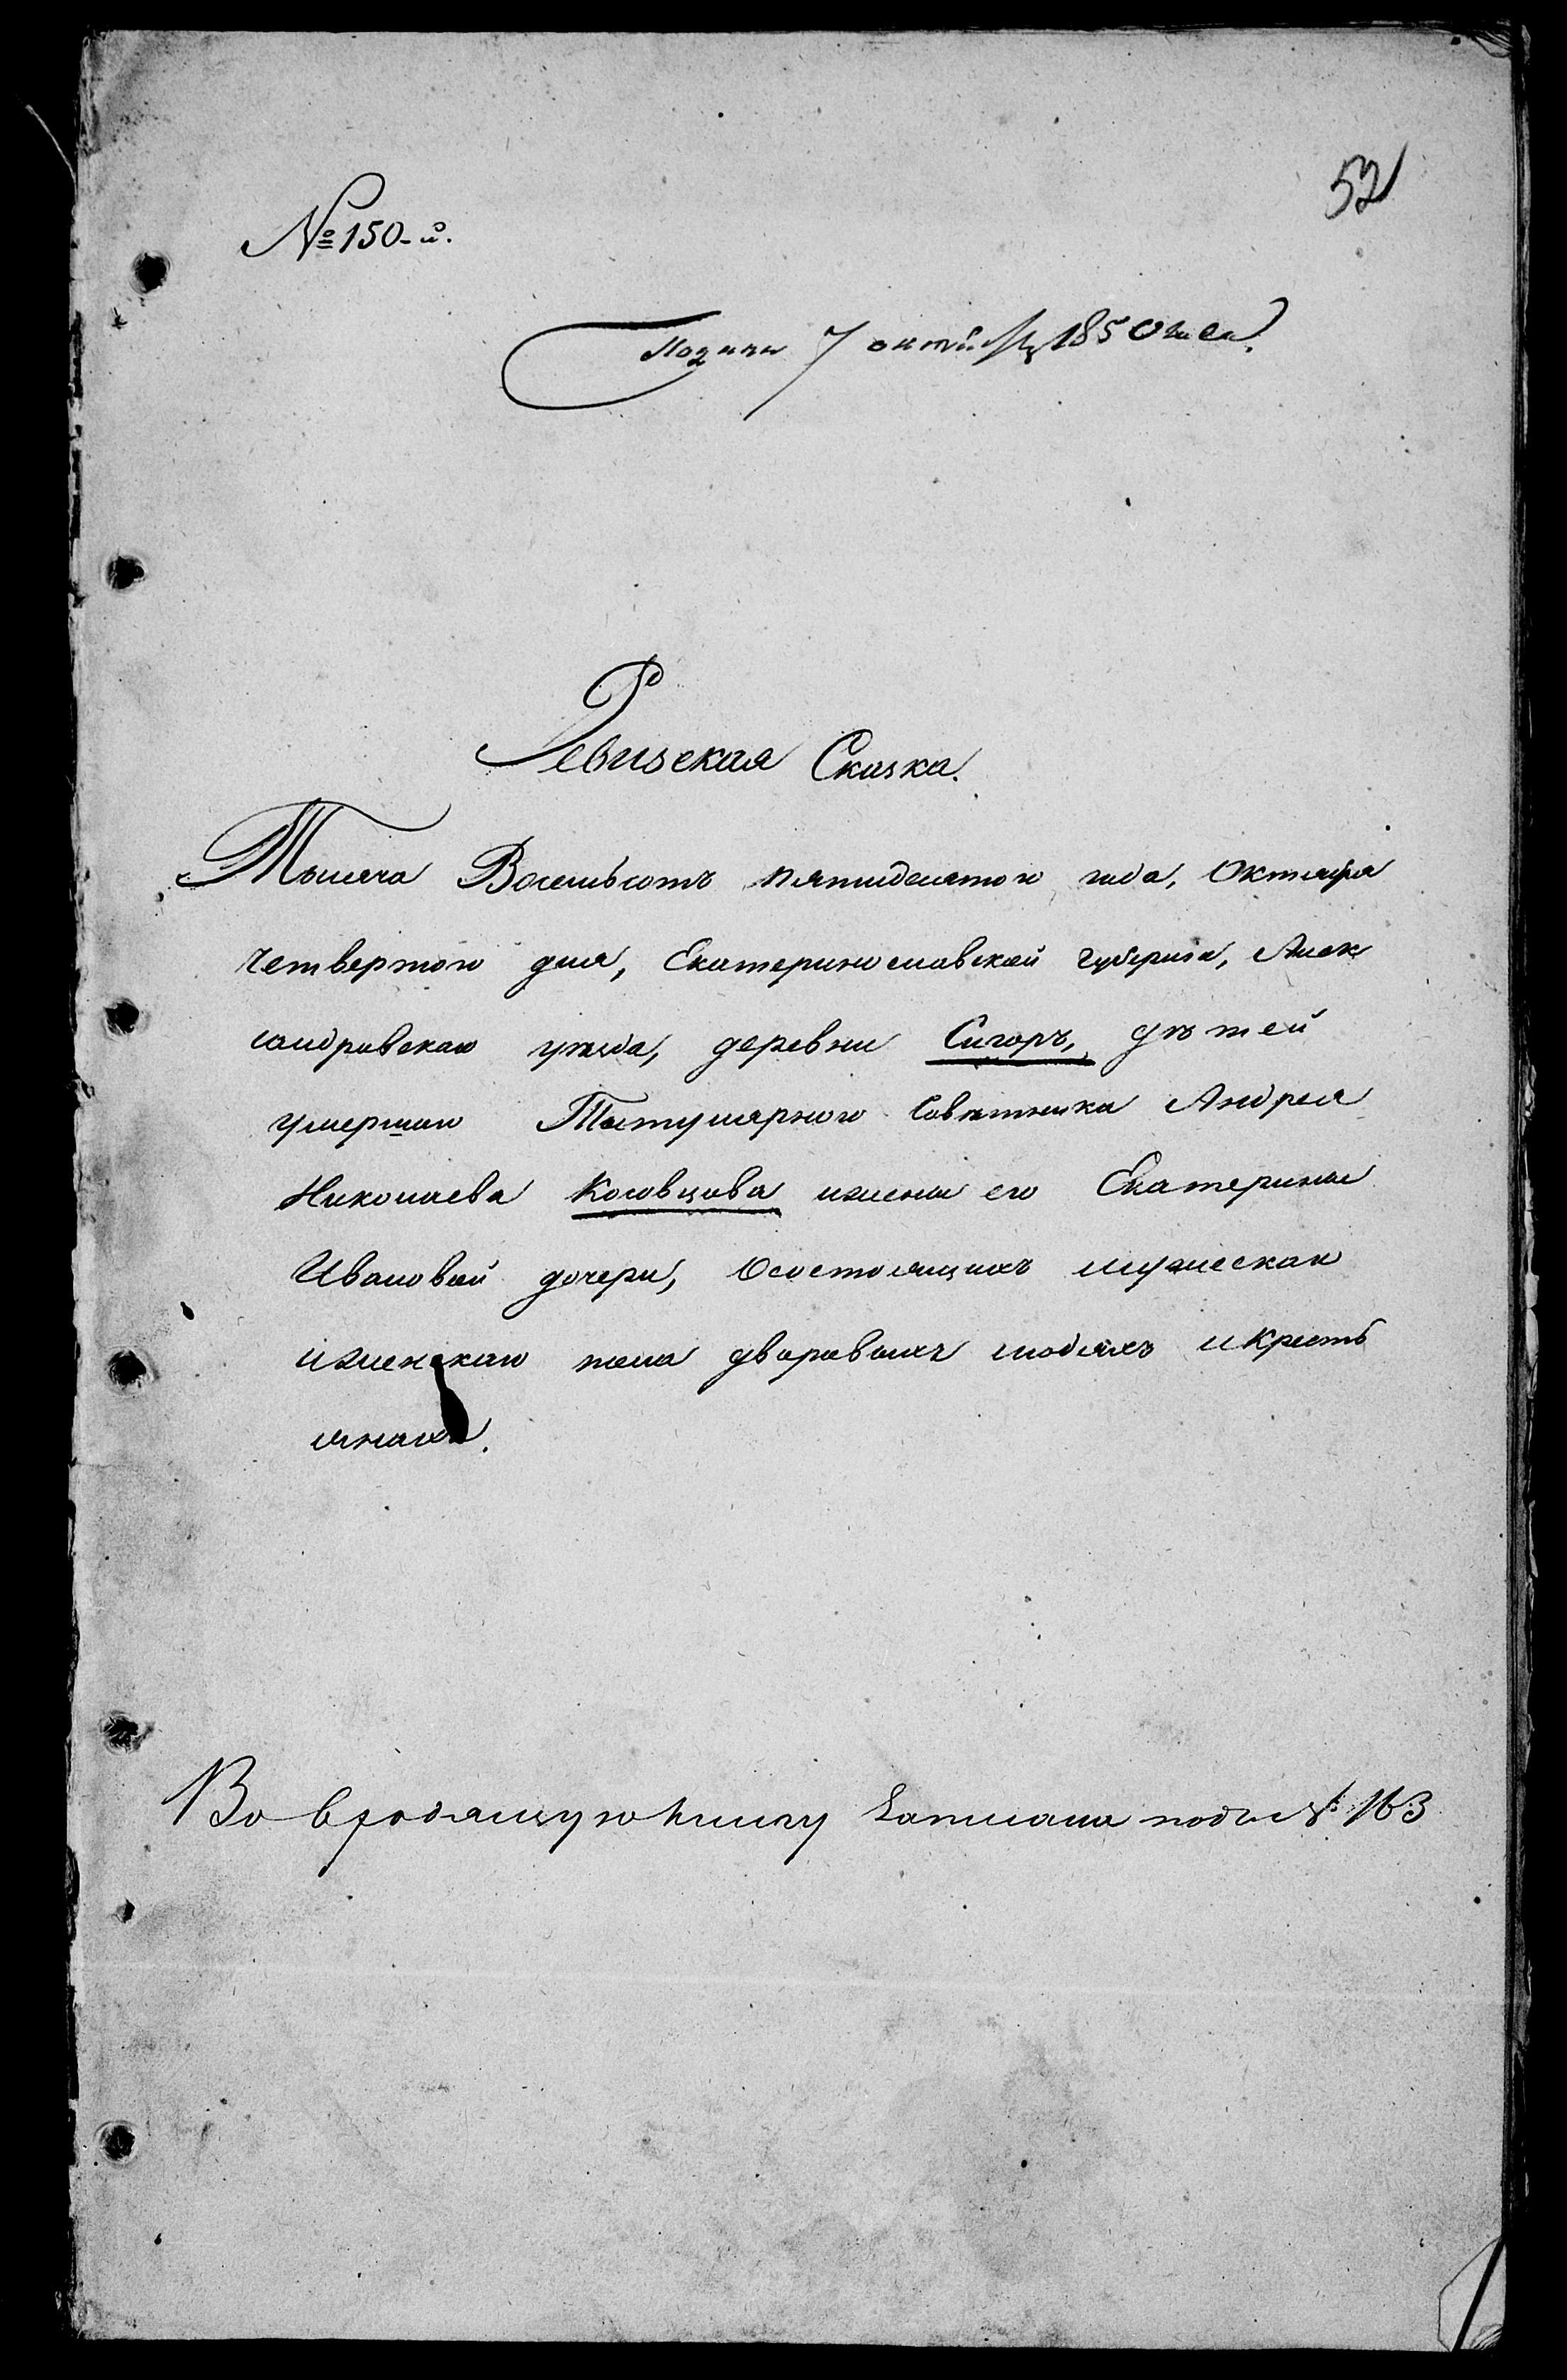 52
№ 150-й.
Подана 7 октября 1850 года
Ревизская Сказка.
Тысяча Восемьсотъ пятидесятого года, Октября
четвертого дня, Екатеринославской губерніи, Алек
сандровскаго уѣзда, деревни Сигоръ, дѣтей
умершаго Титулярного Совѣтника Андрея
Николаева Косовцова ижены его Екатерины
Ивановой дочери, Осостоящихъ мужескаго
иженскаго пола дворовыхъ людяхъ икресть
янахъ.
Во входящую книгу записана подъ № 163